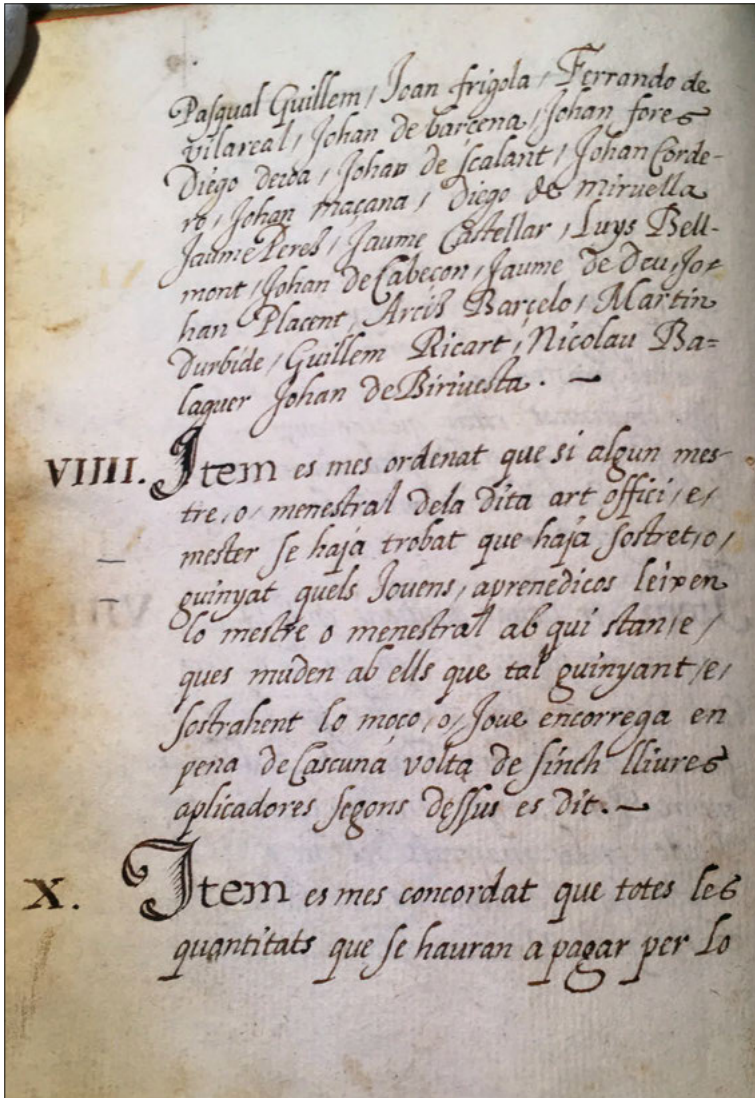 Pasqual Guillem / Joan frigola / Ferrando de
vilareal / Johan de barcena / Johan fores
Diego deroa / Johan de scalant / Johan Corde-
ro / Johan maçana / Diego de miruella
Jaume Peres / Jaume Castellar / Luys Bell-
mont / Johan de Cabeçon / Jaume de Deu / Jo-
han Placent / Arcis Barçelo / Martin
Durbide / Guillem Ricart / Nicolau Ba=
laguer Johan de Birivesta. ~
VIIII. Item es mes ordenat que si algun mes-
tre / o / menestral dela dita art offici / e /
mester se haja trobat que haja sostret / o /
guinyat quels Jovens / aprenedicos leixen
lo mestre o menestral ab qui stan / e /
ques muden ab ells que tal guinyant / e /
sostrahent lo moço / o / Jove encorrega en
pena de Cascuna volta de sinch lliures
aplicadores segons dessus es dit. ~
X. Item es mes concordat que totes les
quantitats que se hauran a pagar per lo